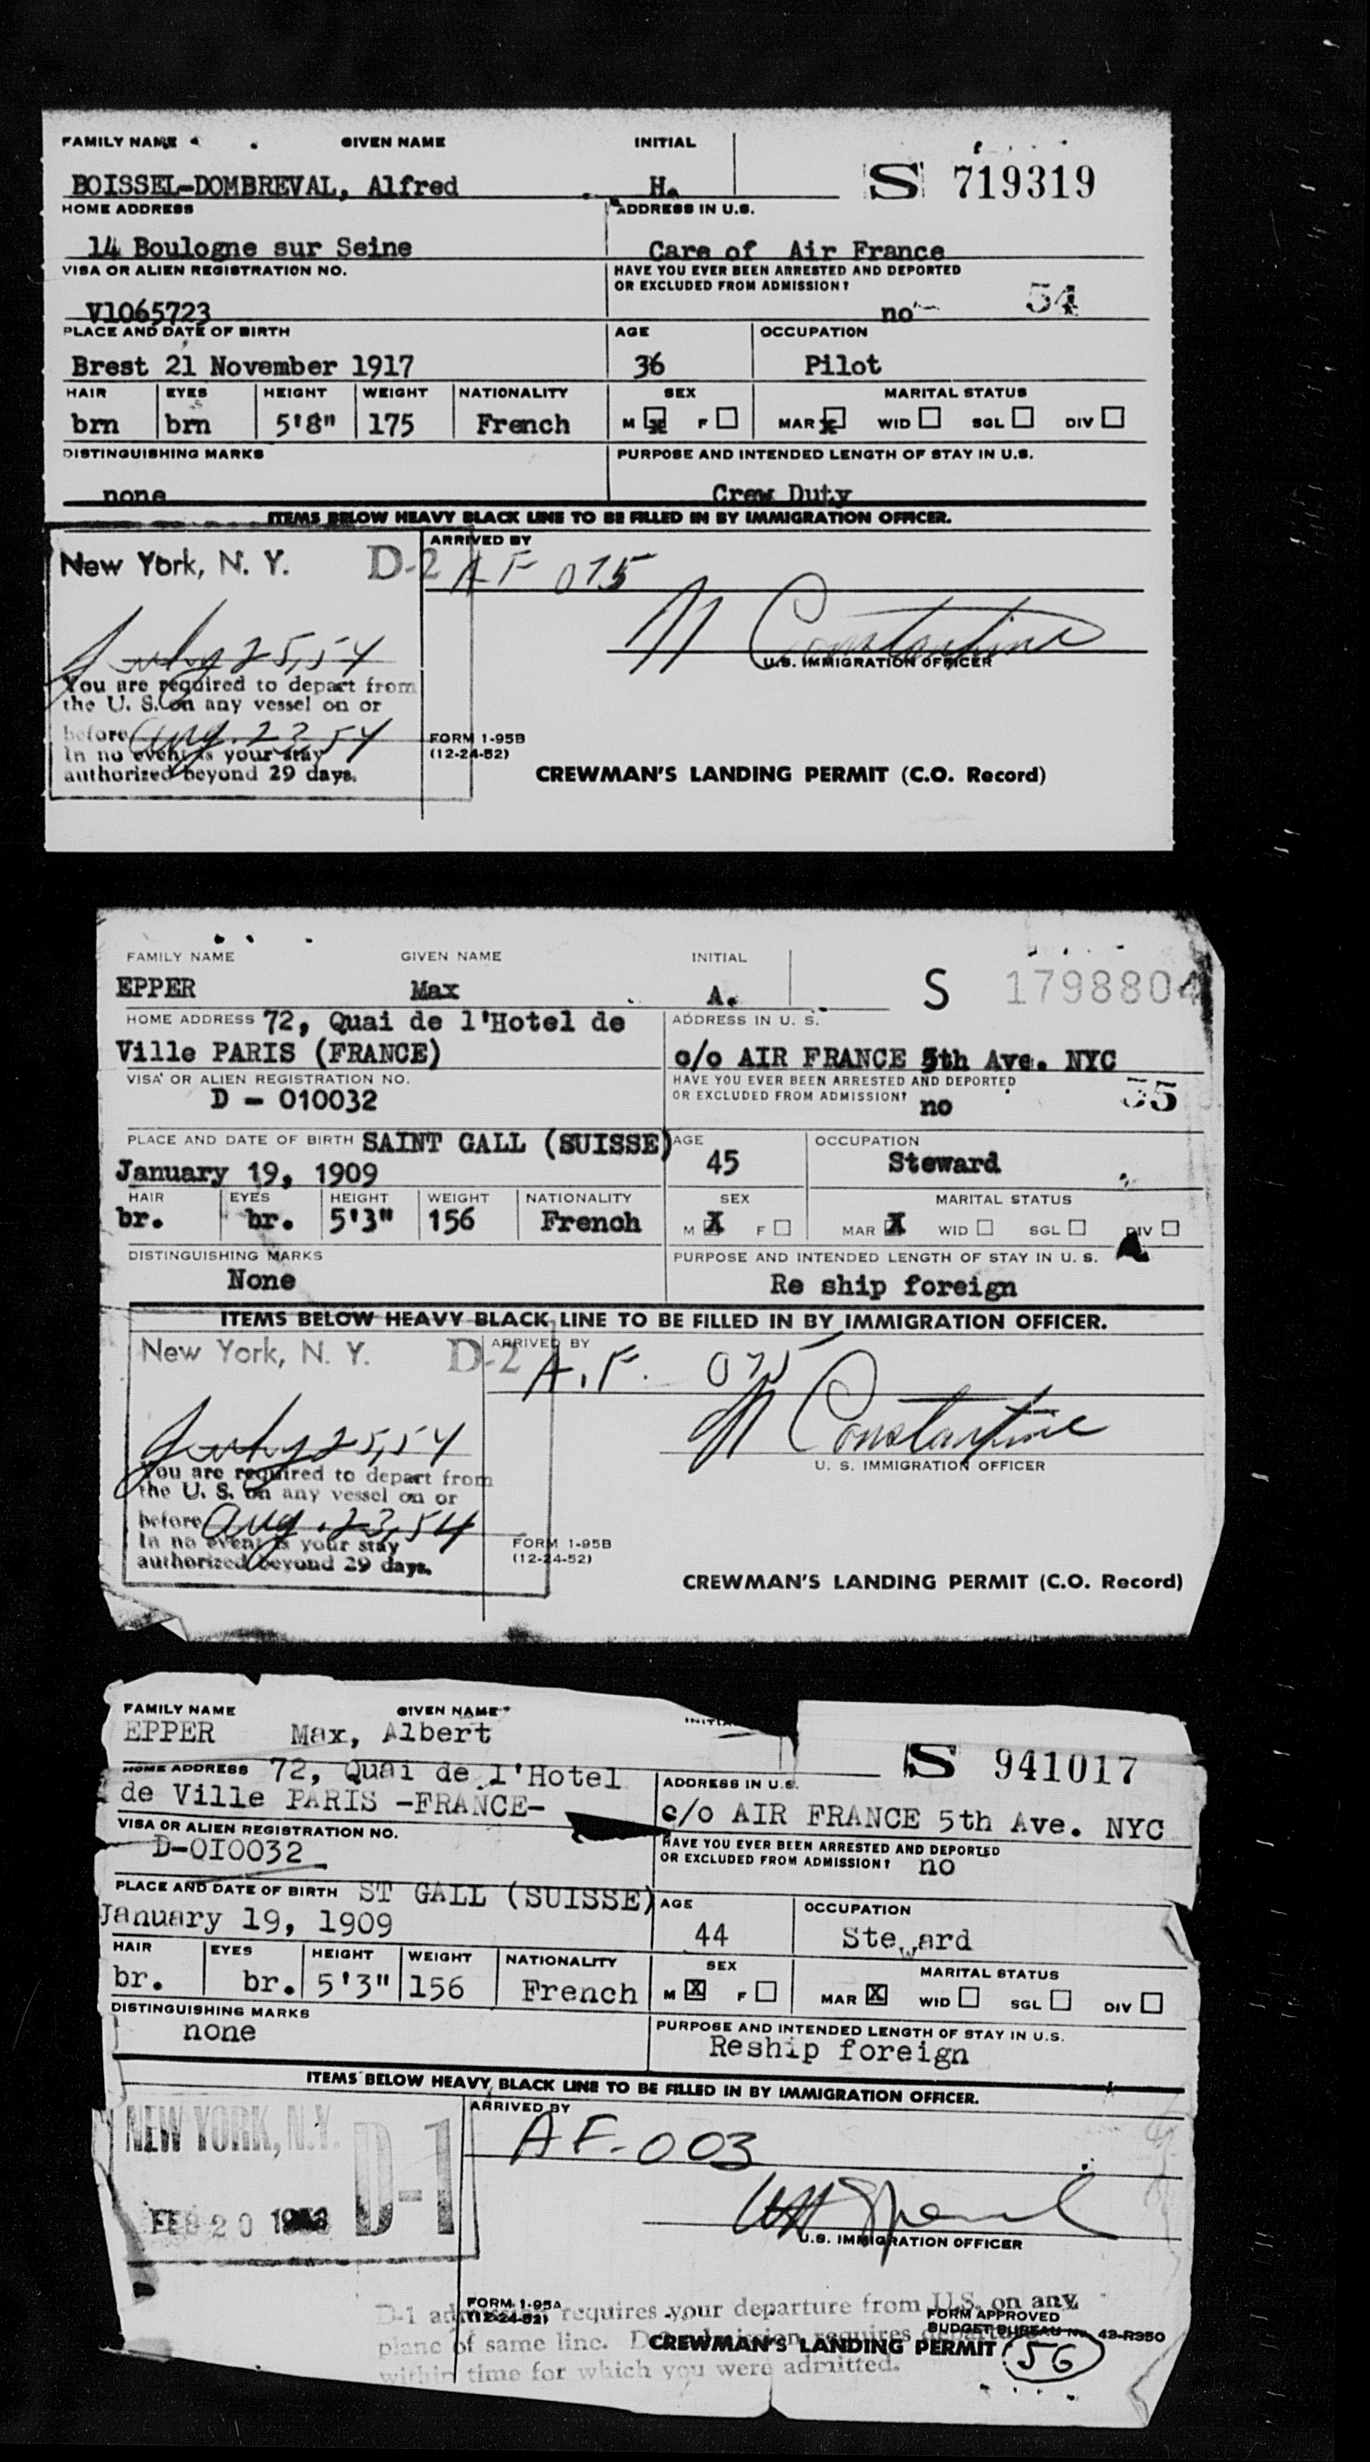 FAMILY NAME GIVEN NAME INITIAL
BOISSEL-DOMBREVAL, Alfred H. S 719319
HOME ADDRESS ADDRESS IN U.S.
14 Boulogne sur Seine Care of Air France
VISA OR ALIEN REGISTRATION NO. HAVE YOU EVER BEEN ARRESTED AND DEPORTED
OR EXCLUDED FROM ADMISSION?
V1065723 no 54
PLACE AND DATE OF BIRTH AGE OCCUPATION
Brest 21 November 1917 36 Pilot
HAIR EYES HEIGHT WEIGHT NATIONALITY SEX MARITAL STATUS
brn brn 5'8" 175 French M x F MAR x WID SGL DIV
DISTINGUISHING MARKS PURPOSE AND INTENDED LENGTH OF STAY IN U.S.
none Crew Duty
ITEMS BELOW HEAVY BLACK LINE TO BE FILLED IN BY IMMIGRATION OFFICER.
ARRIVED BY
New York, N. Y. D-2 AF 075
N Constantine
July 25,54 U.S. IMMIGRATION OFFICER
You are required to depart from
the U. S. on any vessel on or
before Aug. 23 54 FORM 1-95B
In no event is your stay (12-24-52)
authorized beyond 29 days. CREWMAN'S LANDING PERMIT (C.O. Record)
FAMILY NAME GIVEN NAME INITIAL
EPPER Max A. S 1798804
HOME ADDRESS 72, Quai de l'Hotel de ADDRESS IN U. S.
Ville PARIS (FRANCE) c/o AIR FRANCE 5th Ave. NYC
VISA OR ALIEN REGISTRATION NO. HAVE YOU EVER BEEN ARRESTED AND DEPORTED
D - 010032 OR EXCLUDED FROM ADMISSION? no 55
PLACE AND DATE OF BIRTH SAINT GALL (SUISSE) AGE OCCUPATION
January 19, 1909 45 Steward
HAIR EYES HEIGHT WEIGHT NATIONALITY SEX MARITAL STATUS
br. br. 5'3" 156 French M X F MAR X WID SGL DIV
DISTINGUISHING MARKS PURPOSE AND INTENDED LENGTH OF STAY IN U. S.
None Re ship foreign
ITEMS BELOW HEAVY BLACK LINE TO BE FILLED IN BY IMMIGRATION OFFICER.
New York, N. Y. D-2 ARRIVED BY A.F. 075
N Constantine
July 25,54 U. S. IMMIGRATION OFFICER
You are required to depart from
the U. S. on any vessel on or
before Aug. 23,54
In no event is your stay FORM 1-95B
authorized beyond 29 days. (12-24-52)
CREWMAN'S LANDING PERMIT (C.O. Record)
FAMILY NAME GIVEN NAME
EPPER Max, Albert S 941017
HOME ADDRESS 72, Quai de l'Hotel ADDRESS IN U.S.
de Ville PARIS -FRANCE- c/o AIR FRANCE 5th Ave. NYC
VISA OR ALIEN REGISTRATION NO. HAVE YOU EVER BEEN ARRESTED AND DEPORTED
D-OI0032 OR EXCLUDED FROM ADMISSION? no
PLACE AND DATE OF BIRTH ST GALL (SUISSE) AGE OCCUPATION
January 19, 1909 44 Steward
HAIR EYES HEIGHT WEIGHT NATIONALITY SEX MARITAL STATUS
br. br. 5'3" 156 French M X F MAR X WID SGL DIV
DISTINGUISHING MARKS PURPOSE AND INTENDED LENGTH OF STAY IN U.S.
none Reship foreign
ITEMS BELOW HEAVY BLACK LINE TO BE FILLED IN BY IMMIGRATION OFFICER.
NEW YORK, N.Y. D-1 ARRIVED BY
AF-003
FEB 20
U.S. IMMIGRATION OFFICER
FORM 1-95A
(12-24-52)
D-1 requires your departure from U.S. on any
FORM APPROVED
BUDGET BUREAU No. 43-R350
plane of same line. requires
CREWMAN'S LANDING PERMIT 56
within time for which you were admitted.